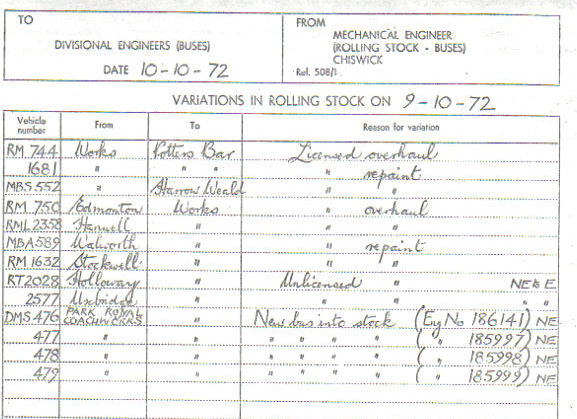 TO
FROM
DIVISIONAL ENGINEERS (BUSES)
MECHANICAL ENGINEER
(ROLLING STOCK - BUSES)
CHISWICK
DATE 10-10-72
Ref. 508/1
VARIATIONS IN ROLLING STOCK ON 9-10-72
Vehicle number From To Reason for variation
RM 744 Works Potters Bar Licensed overhaul
1681 " " " " repaint
MBS 552 " Harrow Weald " "
RM 750 Edmonton Works " overhaul
RML 2358 Hanwell " " "
MBA 589 Walworth " " repaint
RM 1632 Stockwell " " "
RT 2028 Holloway " Unlicensed " NE & E
2577 Uxbridge " " " " "
DMS 476 PARK ROYAL COACHWORKS " New bus into stock (Eng No 186141) NE
477 " " " " " " ( " 185997) NE
478 " " " " " " ( " 185998) NE
479 " " " " " " ( " 185999) NE